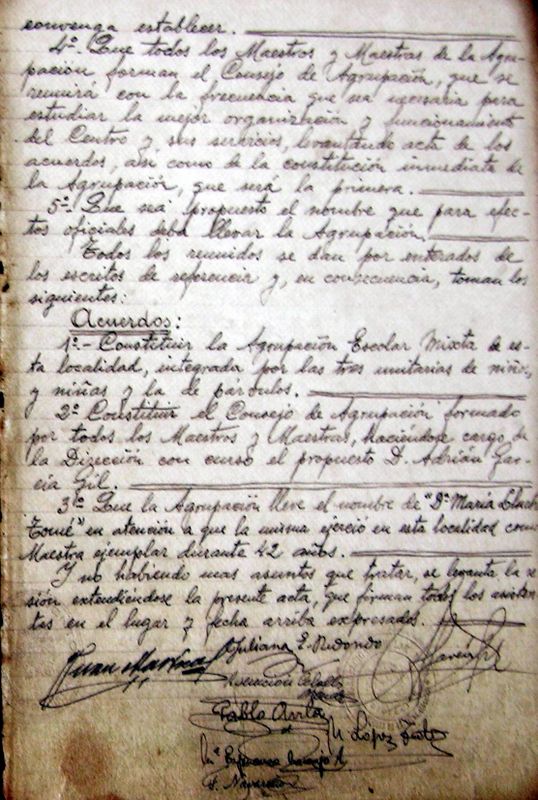 convenga establecer.
4º- Que todos los Maestros y Maestras de la Agru-
pación, forman el Consejo de Agrupación, que se
reunirá con la frecuencia que sea necesaria para
estudiar la mejor organización y funcionamiento
del Centro y sus servicios, levantando acta de los
acuerdos, asi como de la constitución inmediata de
la Agrupación, que será la primera.
5º- Que sea propuesto el nombre que para efec-
tos oficiales deba llevar la Agrupación.
Todos los reunidos se dan por enterados de
los escritos de referencia y, en consecuencia, toman los
siguientes:
Acuerdos:
1º.- Constituir la Agrupación Escolar Mixta de es-
ta localidad, integrada por las tres unitarias de niños,
y niñas y la de párvulos.
2º Constituir el Consejo de Agrupación formado
por todos los Maestros y Maestras, haciéndose cargo de
la Dirección con curso el propuesto D. Adrián Gar-
cía Gil.
3º Que la Agrupación lleve el nombre de "Dª María
Tomé" en atención a que la misma ejerció en esta localidad como
Maestra ejemplar durante 42 años.
Y no habiendo mas asuntos que tratar, se levanta la se-
sión extendiéndose la presente acta, que firman todos los asisten-
tes en el lugar y fecha arriba expresados.
Juliana E. Redondo
Juan
Pablo Ávila
M López
Mª Esperanza